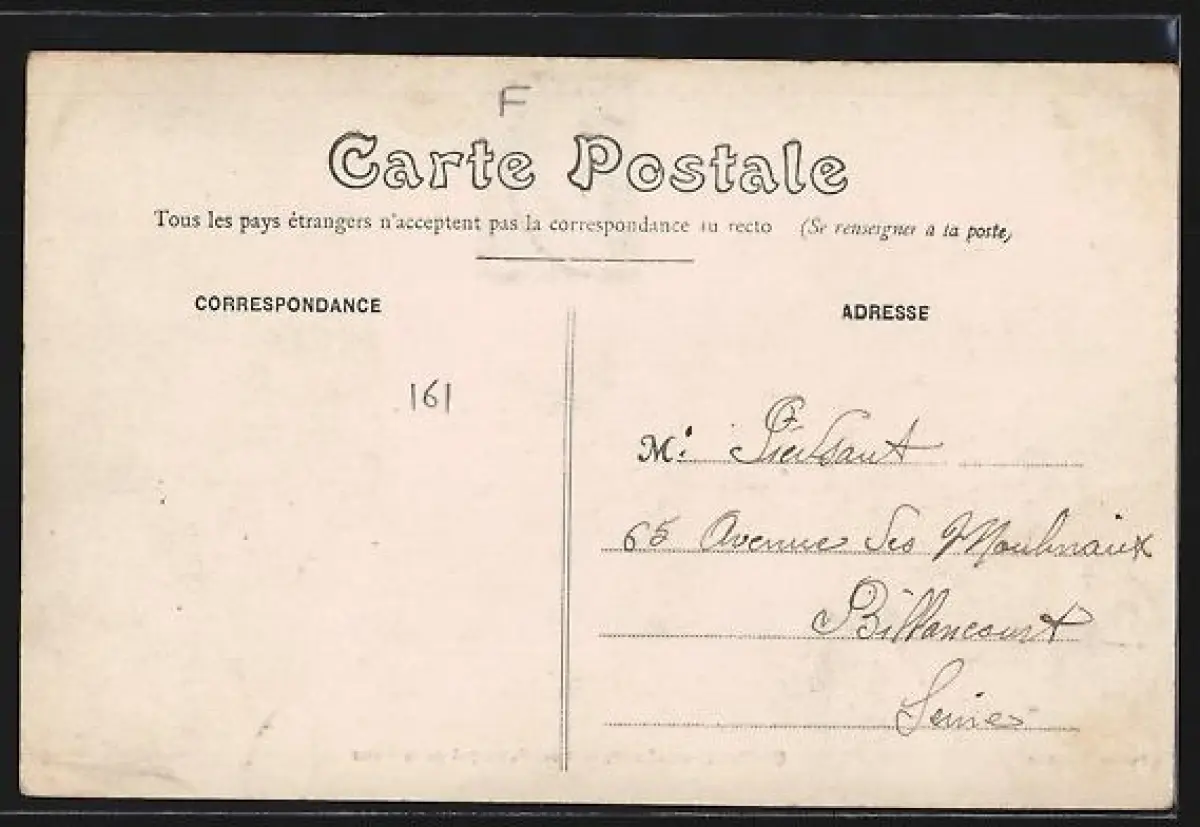 F
Carte Postale
Tous les pays étrangers n'acceptent pas la correspondance au recto (Se renseigner à la poste)
CORRESPONDANCE
ADRESSE
161
M.
65 Avenue des Moulinaux
Billancourt
Seine